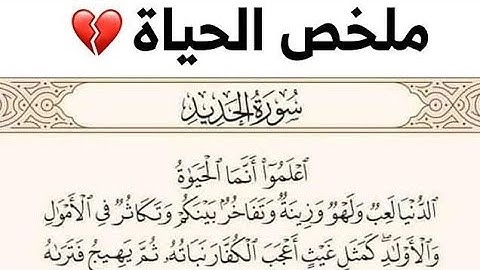 ملخص الحياة 💔
سُورَةُ الحَدِيدِ
ٱعۡلَمُوٓاْ أَنَّمَا ٱلۡحَيَوٰةُ
ٱلدُّنۡيَا لَعِبٞ وَلَهۡوٞ وَزِينَةٞ وَتَفَاخُرُۢ بَيۡنَكُمۡ وَتَكَاثُرٞ فِي ٱلۡأَمۡوَٰلِ
وَٱلۡأَوۡلَٰدِۖ كَمَثَلِ غَيۡثٍ أَعۡجَبَ ٱلۡكُفَّارَ نَبَاتُهُۥ ثُمَّ يَهِيجُ فَتَرَىٰهُ